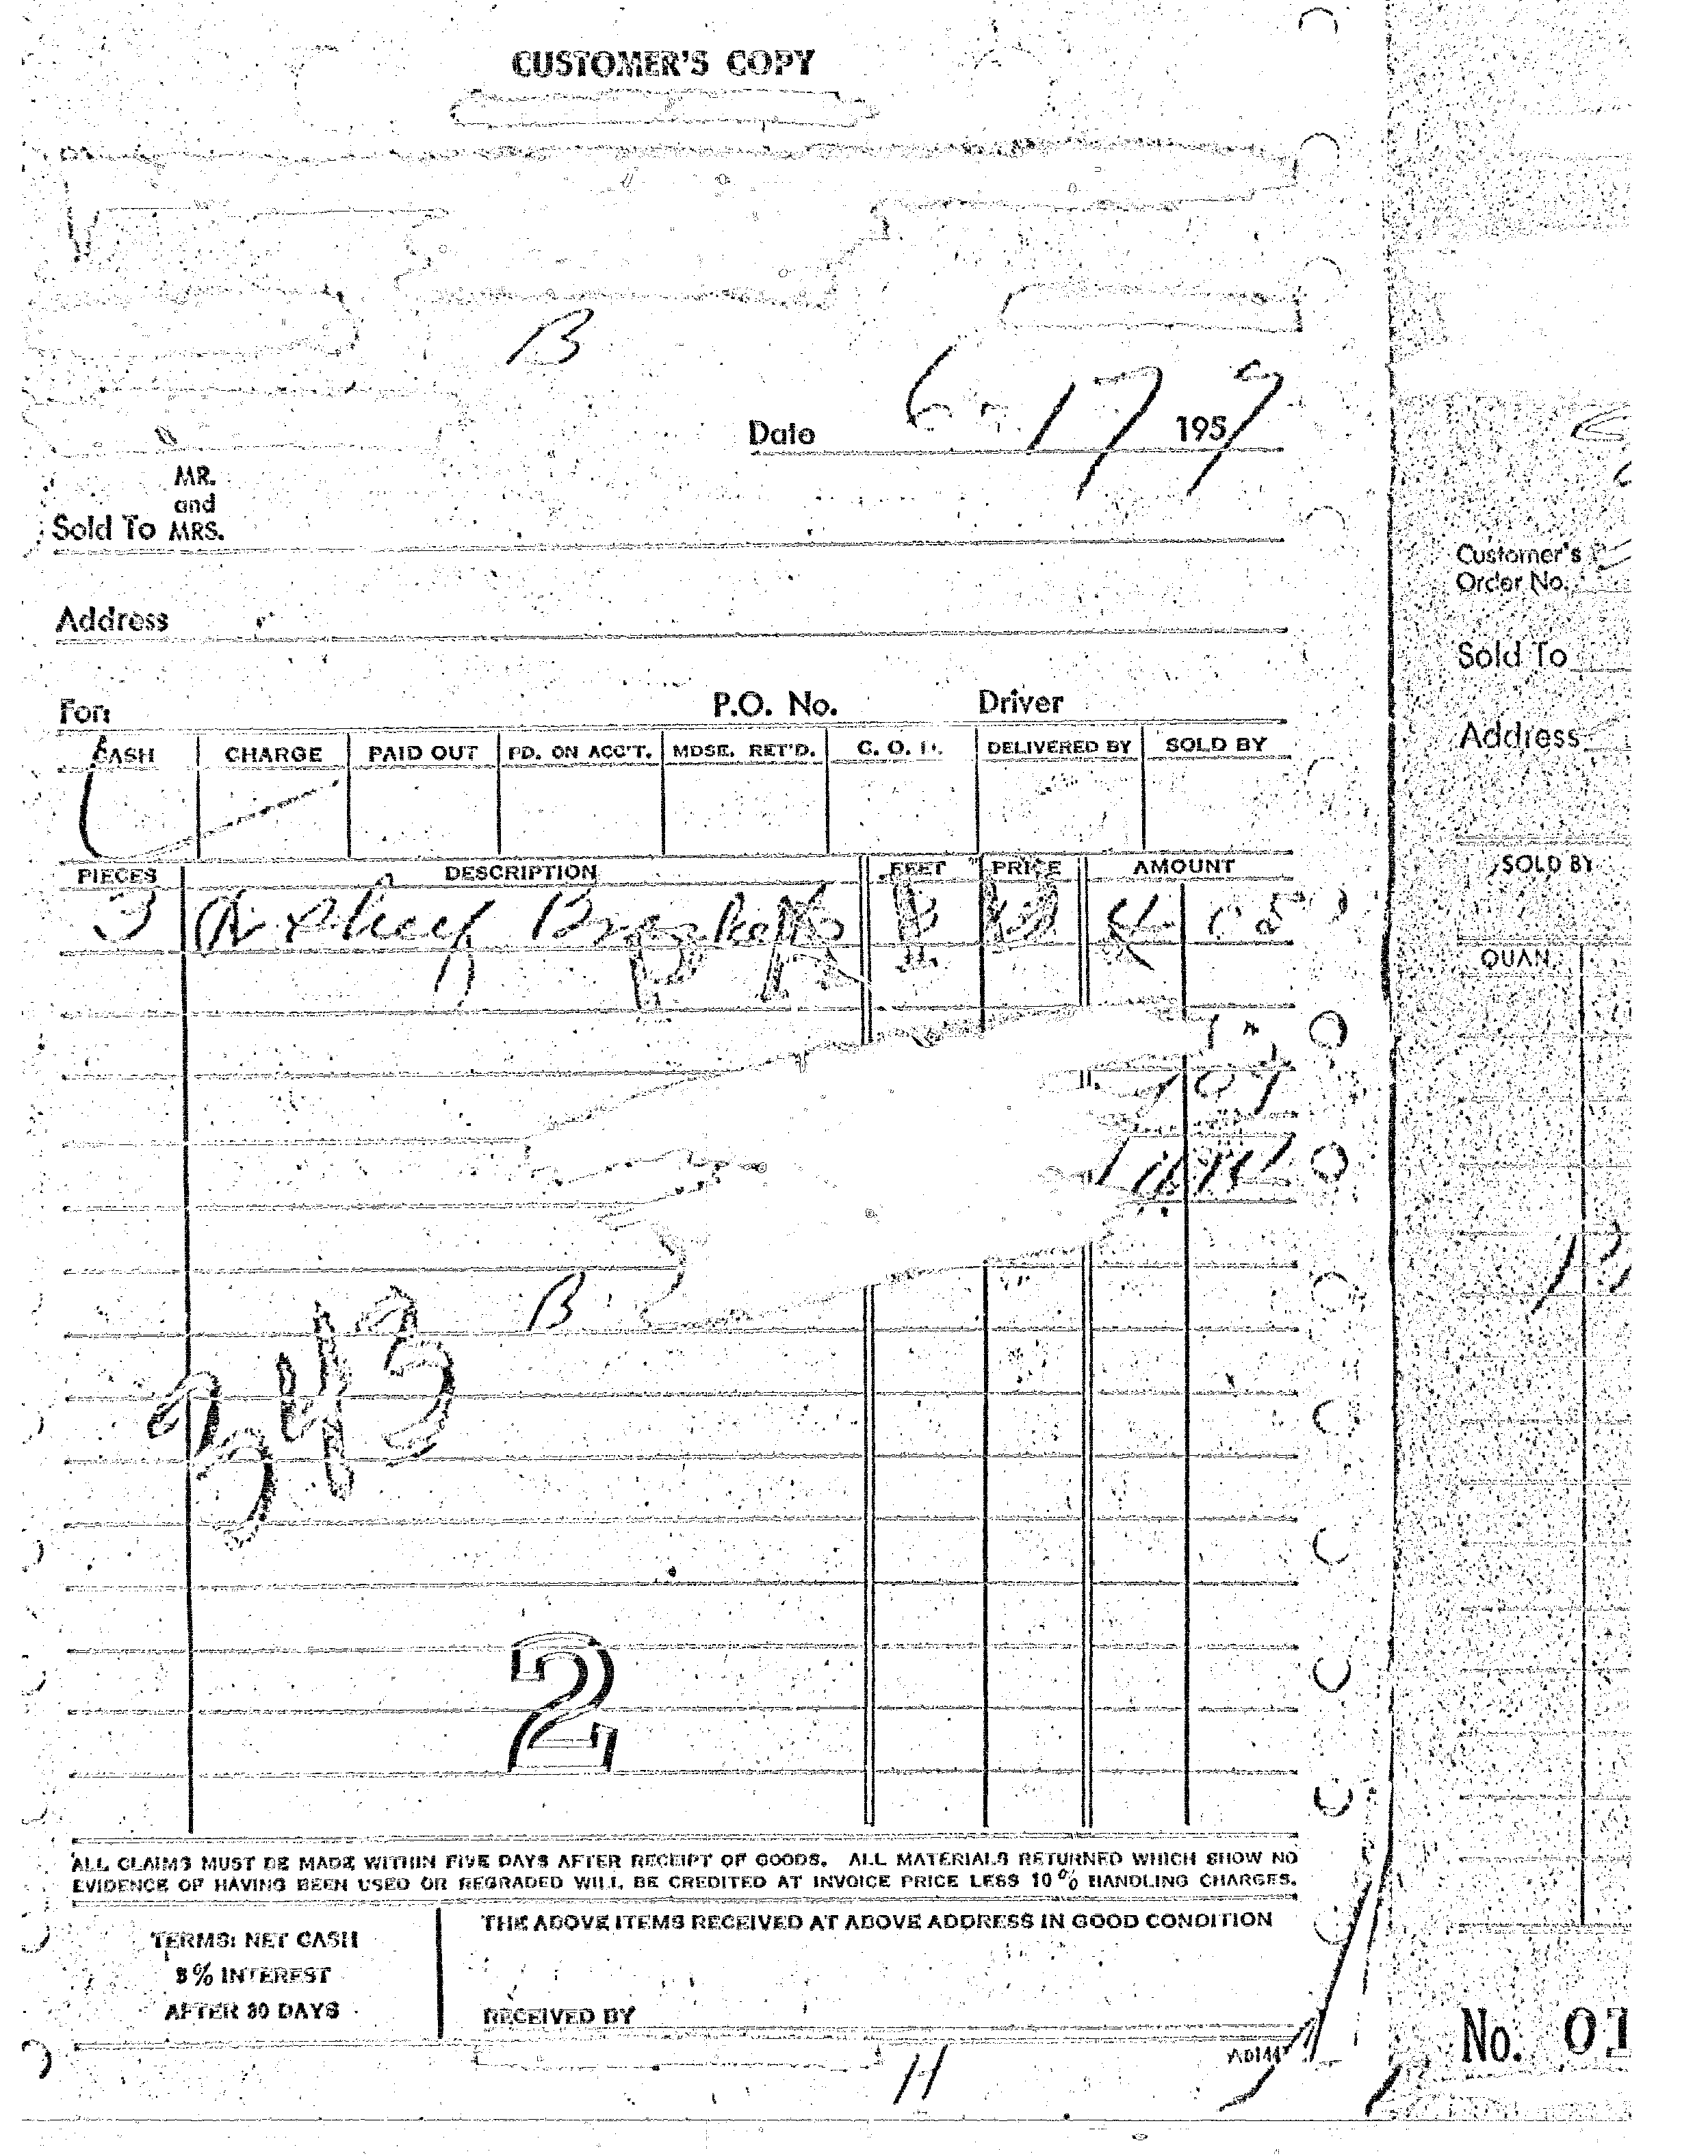 CUSTOMER'S COPY
B
Date 6-17 1959
MR.
and
Sold To MRS.
Address
For P.O. No. Driver
CASH CHARGE PAID OUT PD. ON ACC'T. MDSE. RET'D. C. O. D. DELIVERED BY SOLD BY
PIECES DESCRIPTION FEET PRICE AMOUNT
3 Shelf Brackets 4 05
B
343
2
ALL CLAIMS MUST BE MADE WITHIN FIVE DAYS AFTER RECEIPT OF GOODS. ALL MATERIALS RETURNED WHICH SHOW NO
EVIDENCE OF HAVING BEEN USED OR REGRADED WILL BE CREDITED AT INVOICE PRICE LESS 10% HANDLING CHARGES.
TERMS: NET CASH
8% INTEREST
AFTER 30 DAYS
THE ABOVE ITEMS RECEIVED AT ABOVE ADDRESS IN GOOD CONDITION
RECEIVED BY
H
Customer's
Order No.
Sold To
Address
SOLD BY
QUAN.
No. 01